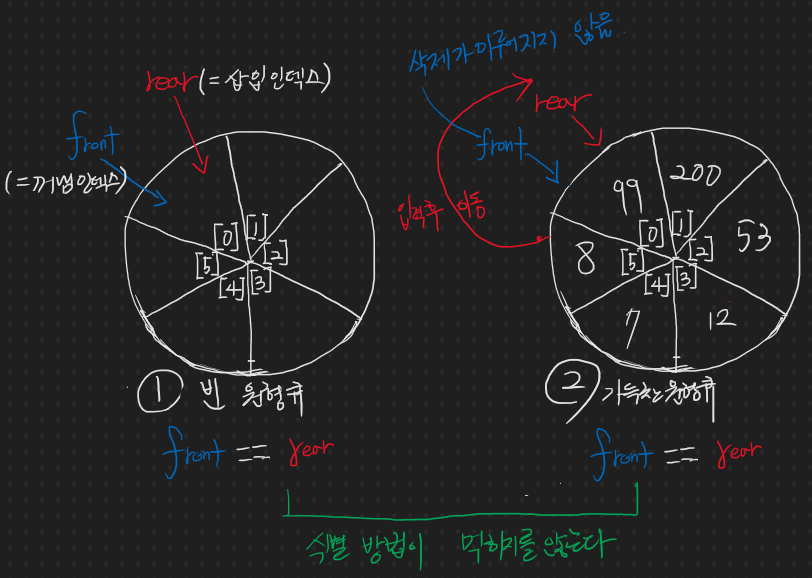 삭제가 이루어지지 않음.
rear (=삽입인덱스)
rear
front
front
(=꺼냄인덱스)
입력후 이동
99
200
[0]
[1]
[2]
[3]
[4]
[5]
8
[0]
[1]
[2]
[3]
[4]
[5]
53
7
12
① 빈 원형큐
② 가득찬원형큐
front == rear
front == rear
식별 방법이 먹히지를않는다